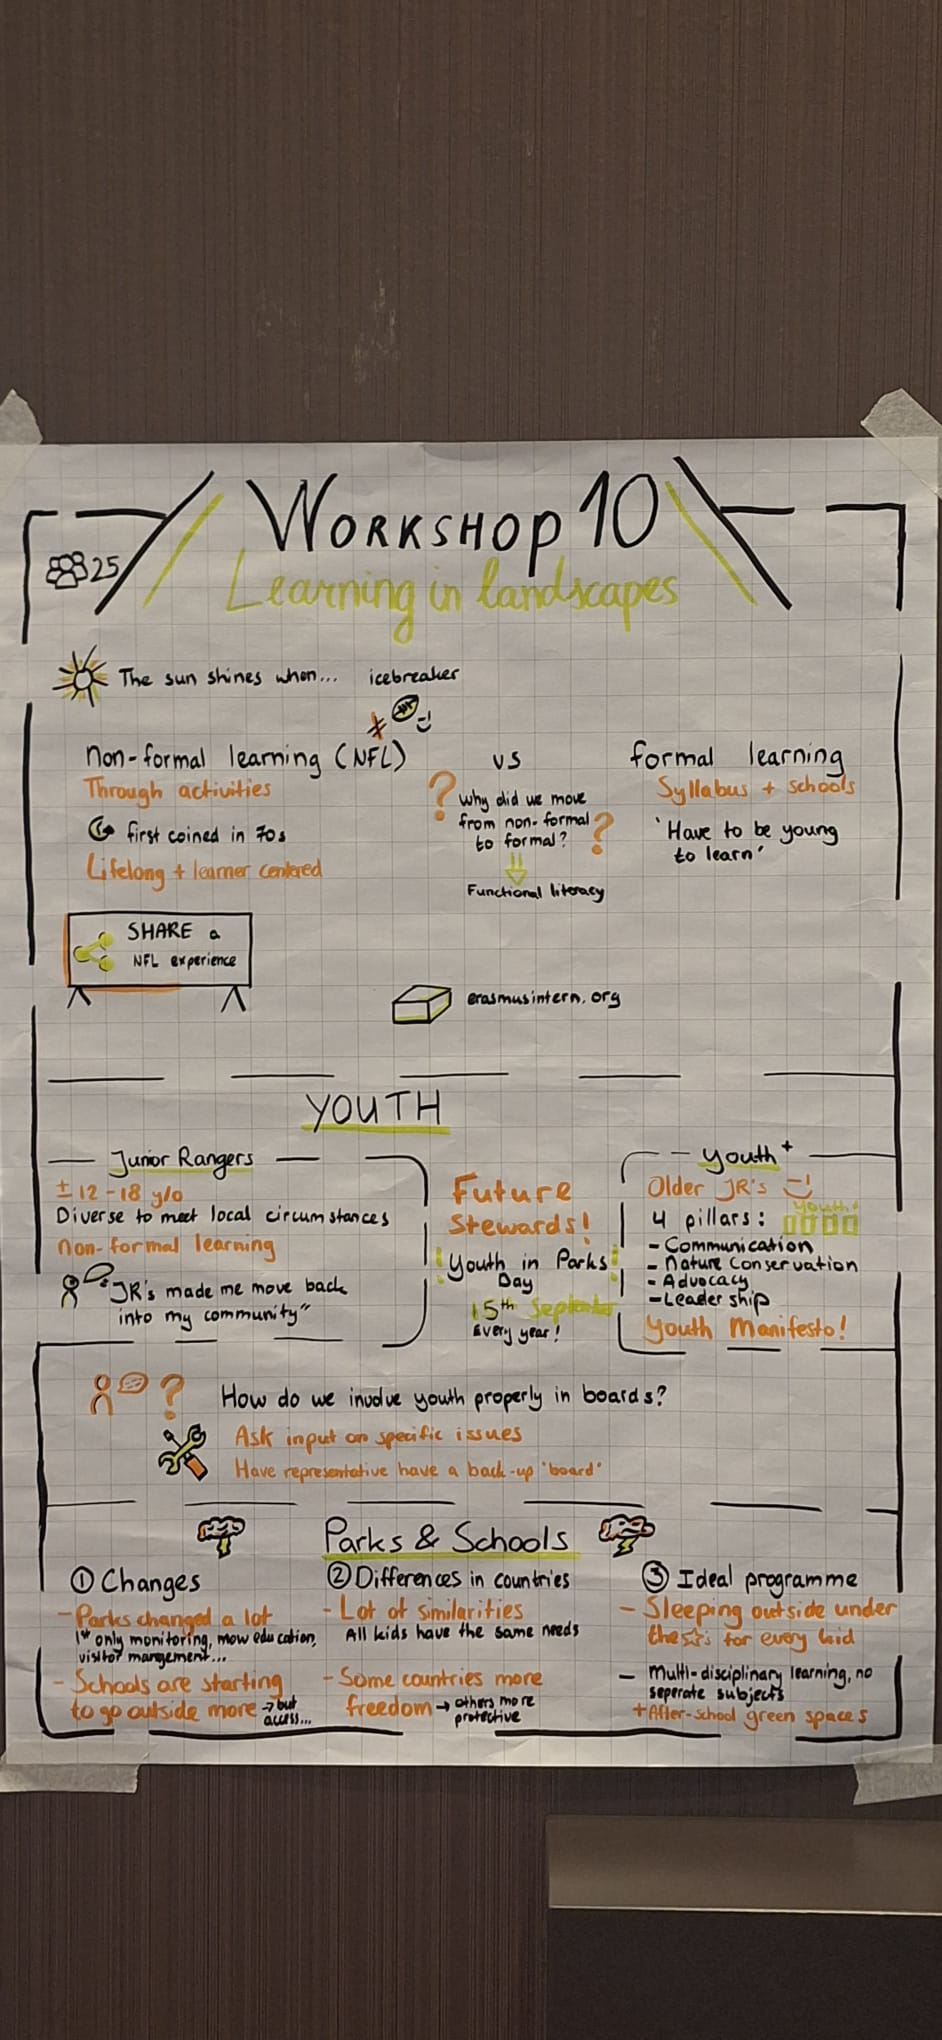 WORKSHOP 10
25
Learning in landscapes
The sun shines when... icebreaker
non-formal learning (NFL)
Through activities
first coined in 70s
Lifelong + learner centered
vs
? Why did we move
from non-formal
to formal? ?
Functional literacy
formal learning
Syllabus + schools
'Have to be young
to learn'
SHARE a
NFL experience
erasmusintern.org
YOUTH
Junior Rangers
± 12-18 y/o
Diverse to meet local circumstances
non-formal learning
"JR's made me move back
into my community"
Future
Stewards!
! Youth in Parks !
Day
15th September
Every year!
Youth+
Older JR's
4 pillars:
Youth+
- Communication
- Nature Conservation
- Advocacy
- Leadership
Youth Manifesto!
? How do we involve youth properly in boards?
Ask input on specific issues
Have representative have a back-up 'board'
Parks & Schools
① Changes
- Parks changed a lot
1st only monitoring, now education,
visitor mangement...
- Schools are starting
to go outside more → but
access...
② Differences in countries
- Lot of similarities
All kids have the same needs
- Some countries more
freedom → others more
protective
③ Ideal programme
- Sleeping outside under
the ☆'s for every kid
- Multi-disciplinary learning, no
seperate subjects
+ After-school green spaces